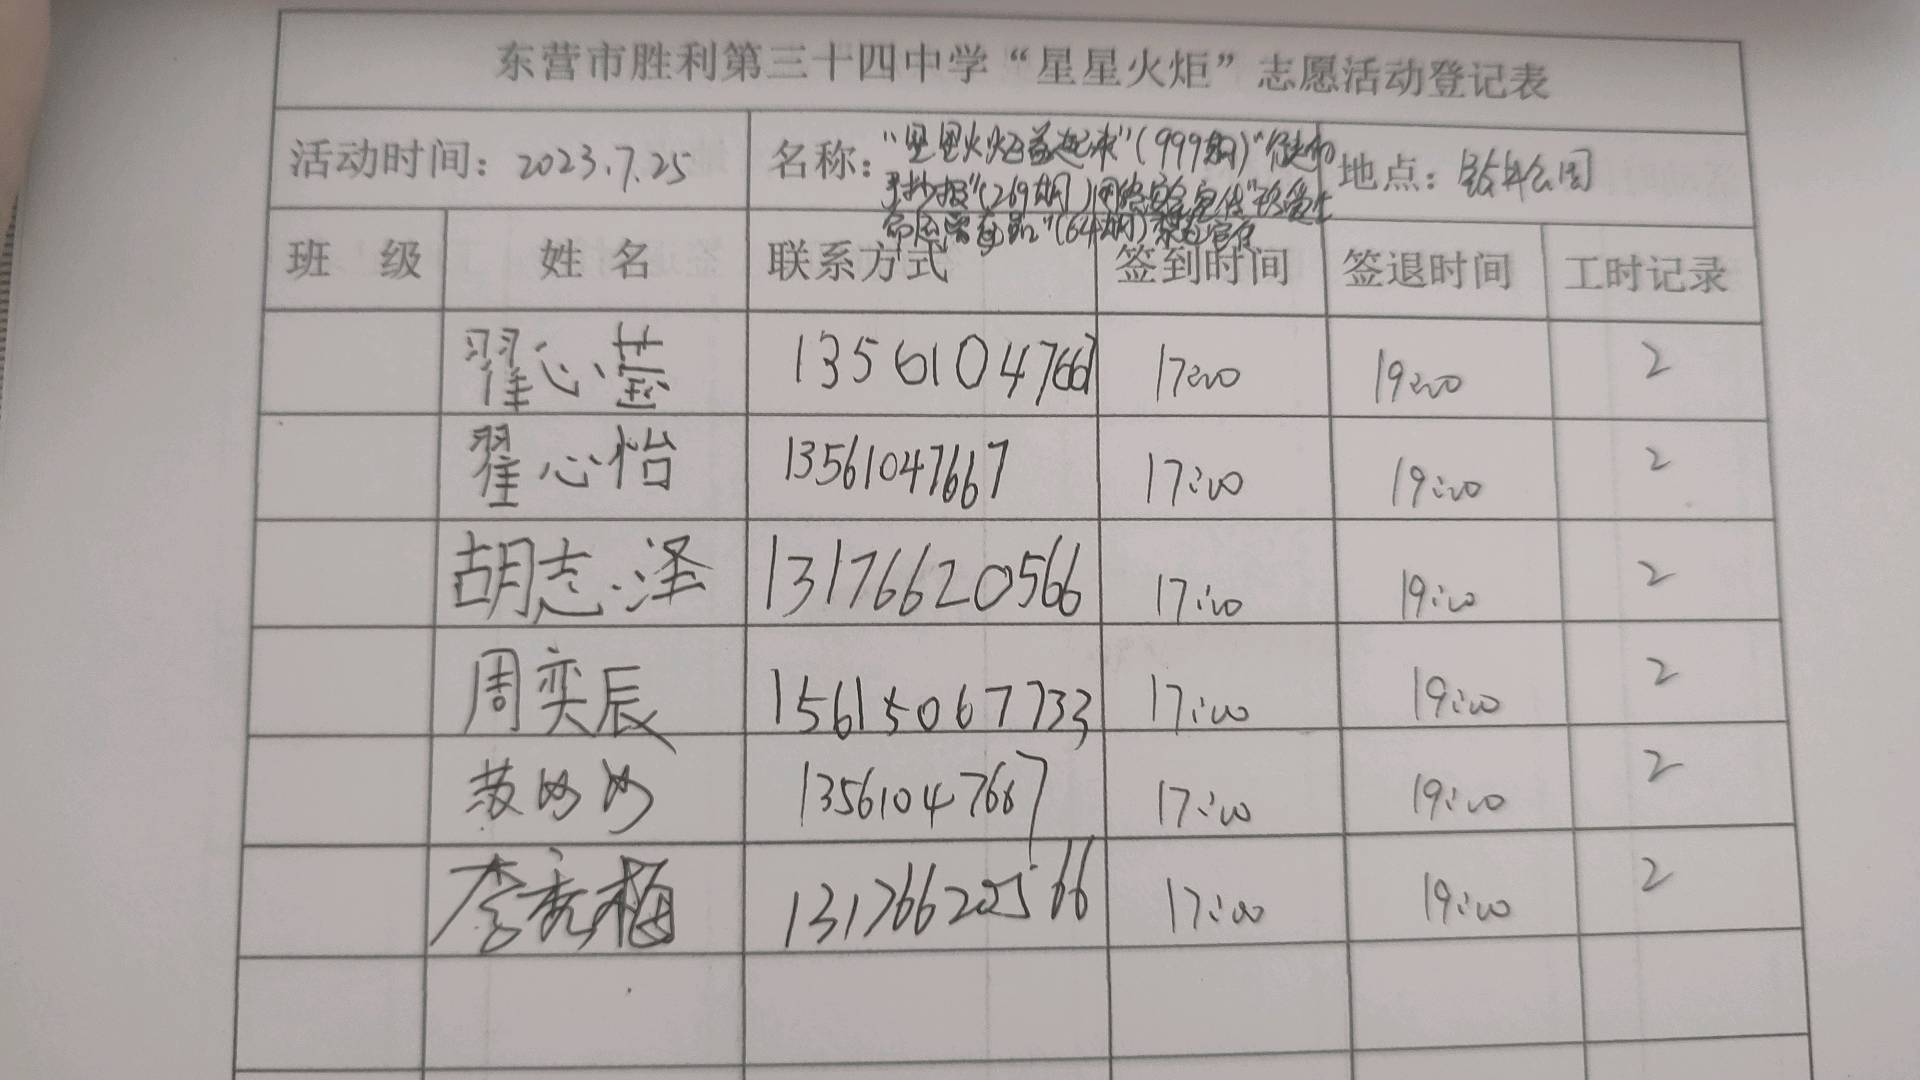 东营市胜利第三十四中学“星星火炬”志愿活动登记表
活动时间：2023.7.25 名称：“星星火炬 (999期)“ 地点：
手抄报”(269期)网络安全宣传“珍爱生
命 ”(64期)
班 级 姓 名 联系方式 签到时间 签退时间 工时记录
翟心 13561047667 17:00 19:00 2
翟心怡 13561047667 17:00 19:00 2
胡志泽 13176620566 17:00 19:00 2
周奕辰 15615067733 17:00 19:00 2
13561047667 17:00 19:00 2
李秀梅 13176620566 17:00 19:00 2